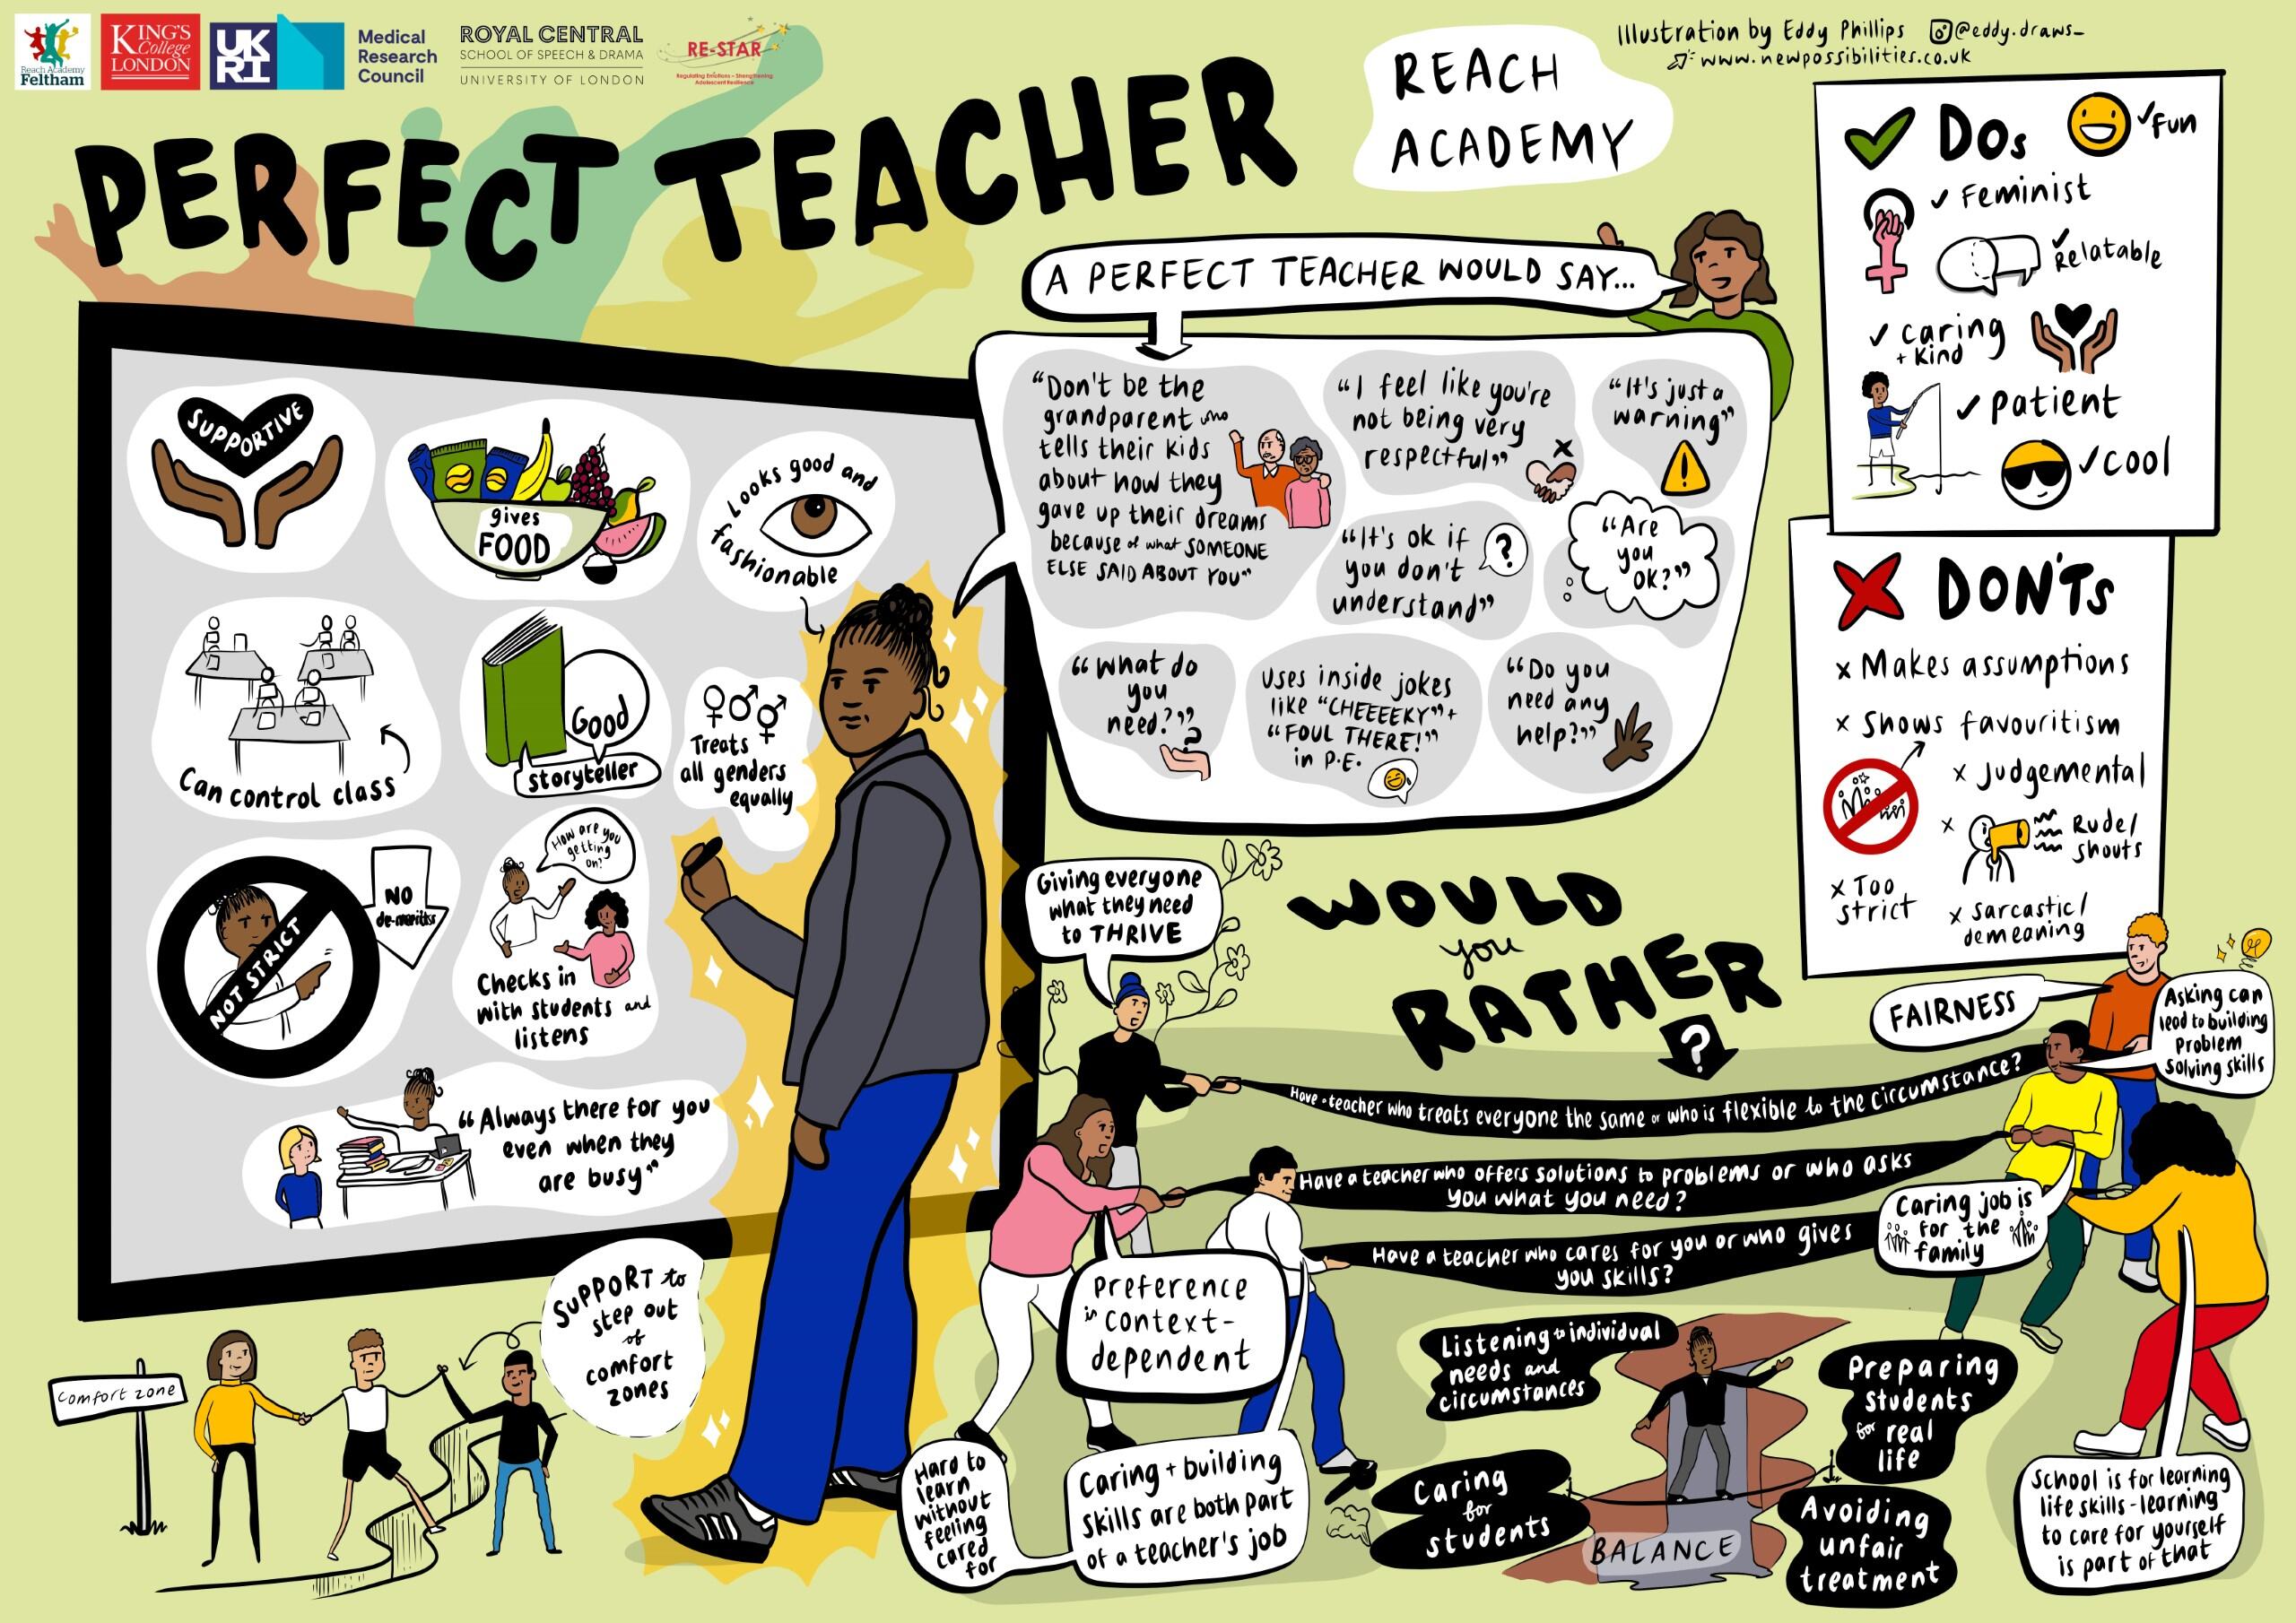 Reach Academy
Feltham
KING'S
College
LONDON
UK
RI
Medical
Research
Council
ROYAL CENTRAL
SCHOOL OF SPEECH & DRAMA
UNIVERSITY OF LONDON
RE-STAR
Regulating Emotions – Strengthening
Adolescent Resilience
Illustration by Eddy Phillips @eddy.draws_
www.newpossibilities.co.uk
PERFECT TEACHER
REACH
ACADEMY
SUPPORTIVE
gives
FOOD
Looks good and
fashionable
Can control class
Good
storyteller
Treats
all genders
equally
NOT STRICT
NO
de-merits
How are you
getting
on?
Checks in
with students and
listens
"Always there for you
even when they
are busy"
SUPPORT to
step out
of
comfort
zones
comfort zone
A PERFECT TEACHER WOULD SAY...
"Don't be the
grandparent who
tells their kids
about how they
gave up their dreams
because of what SOMEONE
ELSE SAID ABOUT YOU"
"I feel like you're
not being very
respectful"
"It's just a
warning"
"It's ok if
you don't
understand"
?
"Are
you
OK?"
"What do
you
need?"
?
Uses inside jokes
like "CHEEEEKY" +
"FOUL THERE!"
in P.E.
"Do you
need any
help?"
DOs
✓ fun
✓ Feminist
✓ Relatable
✓ caring
+ kind
✓ patient
✓ cool
DON'Ts
x Makes assumptions
x Shows favouritism
x Judgemental
x Rude/
shouts
x Too
strict
x sarcastic/
demeaning
WOULD
you
RATHER
?
Giving everyone
what they need
to THRIVE
FAIRNESS
Asking can
lead to building
Problem
Solving skills
Have a teacher who treats everyone the same or who is flexible to the circumstance?
Have a teacher who offers solutions to problems or who asks
you what you need?
Have a teacher who cares for you or who gives
you skills?
Caring job is
for the
family
Preference
is context-
dependent
Hard to
learn
without
feeling
cared
for
Caring + building
skills are both part
of a teacher's job
Listening to individual
needs and
circumstances
Caring
for
students
BALANCE
Preparing
students
for real
life
Avoiding
unfair
treatment
School is for learning
life skills - learning
to care for yourself
is part of that